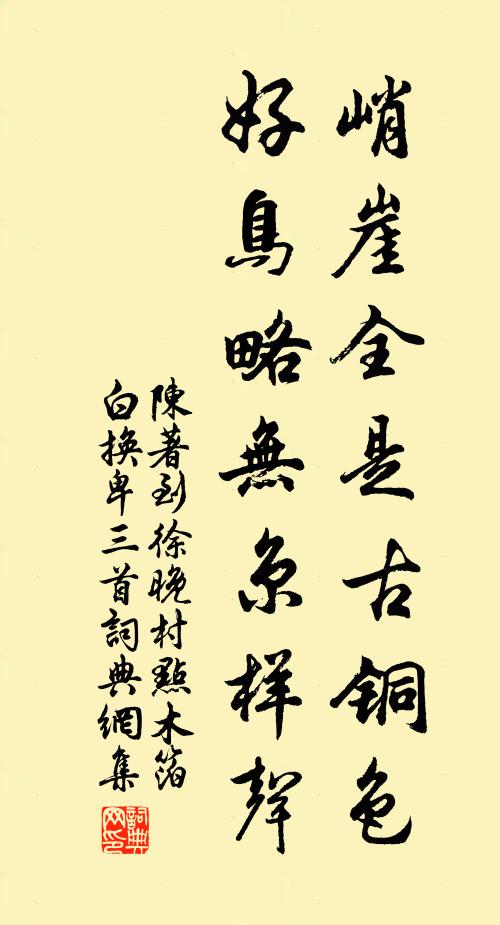 峭崖全是古銅色
好鳥略無京样聲
陳著到徐晚村點木箔
白換卑三首詞典網集
詞典网印